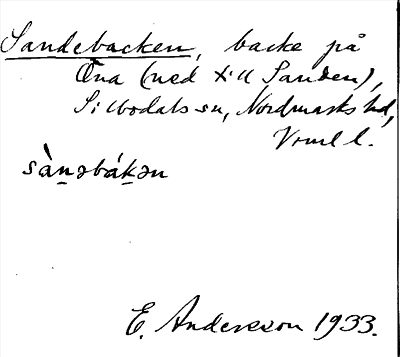 Sandebacken, backe på
Öna (ned till Sanden),
Silbodals sn, Nordmarks hd,
Vrml l.
sàn̲əbák̲ən
E. Andersson 1933.